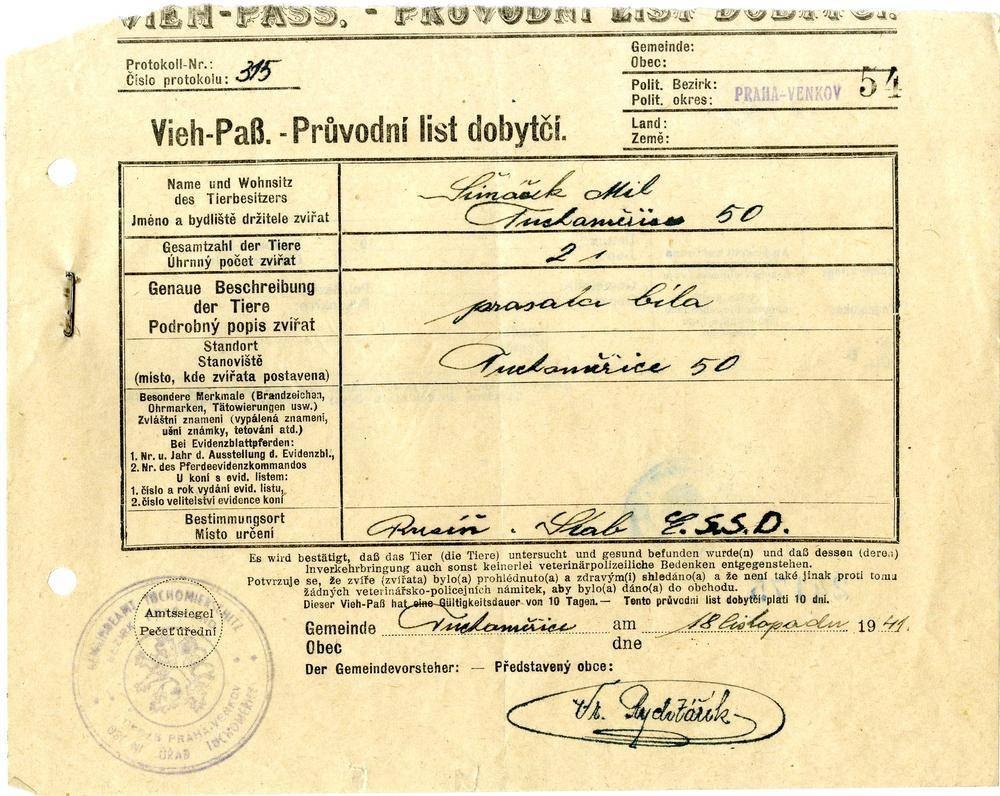 VIEH-PASS. - PRŮVODNÍ LIST DOBYTČÍ.
Protokoll-Nr.:
Číslo protokolu: 315
Gemeinde:
Obec:
Polit. Bezirk:
Polit. okres: PRAHA-VENKOV 54
Land:
Země:
Vieh-Paß. - Průvodní list dobytčí.
Name und Wohnsitz
des Tierbesitzers
Jméno a bydliště držitele zvířat
Šimáček Mil
Tuchoměřice 50
Gesamtzahl der Tiere
Úhrnný počet zvířat
2
Genaue Beschreibung
der Tiere
Podrobný popis zvířat
prasata bílá
Standort
Stanoviště
(místo, kde zvířata postavena)
Tuchoměřice 50
Besondere Merkmale (Brandzeichen,
Ohrmarken, Tätowierungen usw.)
Zvláštní znamení (vypálená znamení,
ušní známky, tetování atd.)
Bei Evidenzblattpferden:
1. Nr. u. Jahr d. Ausstellung d. Evidenzbl.,
2. Nr. des Pferdeevidenzkommandos
U koní s evid. listem:
1. číslo a rok vydání evid. listu,
2. číslo velitelství evidence koní
Bestimmungsort
Místo určení
Rusín
Es wird bestätigt, daß das Tier (die Tiere) untersucht und gesund befunden wurde(n) und daß dessen (deren)
Inverkehrbringung auch sonst keinerlei veterinärpolizeiliche Bedenken entgegenstehen.
Potvrzuje se, že zvíře (zvířata) bylo(a) prohlédnuto(a) a zdravým(i) shledáno(a) a že není také jinak proti tomu
žádných veterinářsko-policejních námitek, aby bylo(a) dáno(a) do obchodu.
Dieser Vieh-Paß hat eine Gültigkeitsdauer von 10 Tagen. — Tento průvodní list dobytčí platí 10 dní.
Amtssiegel
Pečeť úřední
Gemeinde Tuchoměřice am 18 listopadu 1941.
Obec dne
Der Gemeindevorsteher: — Představený obce:
GEMEINDEAMT TUCHOMIERSCHITZ
BEZIRK
OKRES PRAHA-VENKOV
OBECNÍ ÚŘAD TUCHOMĚŘICE